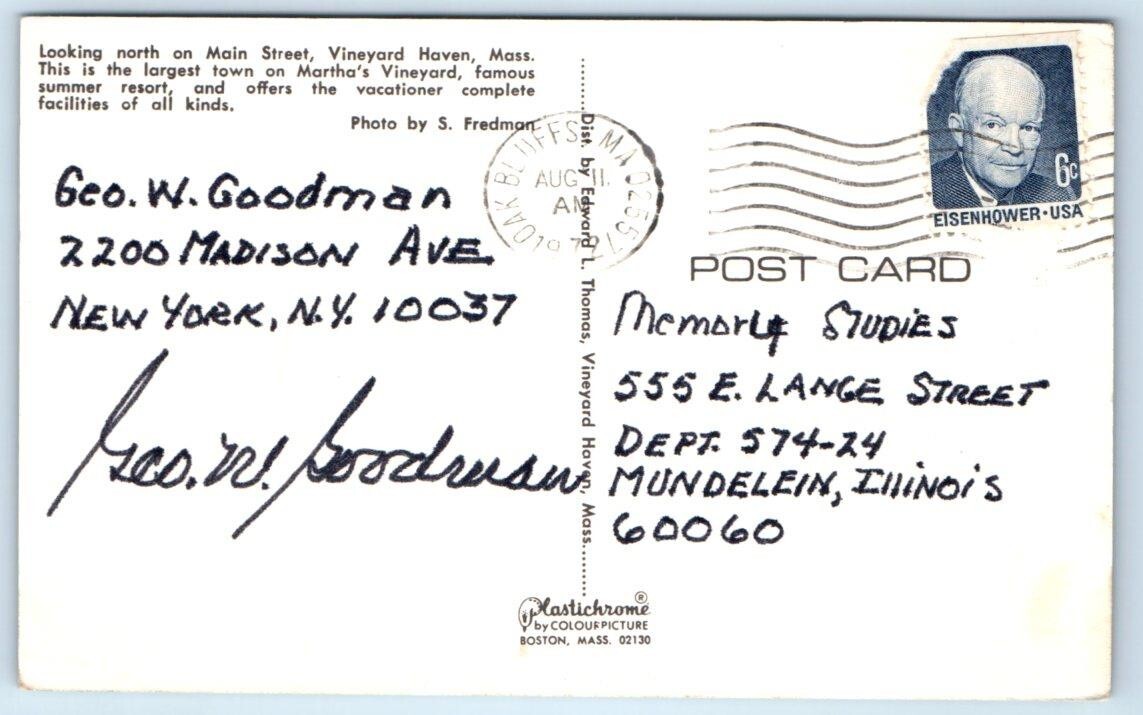 Looking north on Main Street, Vineyard Haven, Mass.
This is the largest town on Martha's Vineyard, famous
summer resort, and offers the vacationer complete
facilities of all kinds.
Photo by S. Fredman
Geo. W. Goodman
2200 MADISON AVE
NEW YORK, N.Y. 10037
Geo. W. Goodman
Dist. by Edward L. Thomas, Vineyard Haven, Mass.
OAK BLUFFS, MA 02557
AUG 11
AM
6c
EISENHOWER·USA
POST CARD
Memory STUDIES
555 E. LANGE STREET
DEPT. 574-24
MUNDELEIN, ILLINOIS
60060
Plastichrome®
by COLOURPICTURE
BOSTON, MASS. 02130